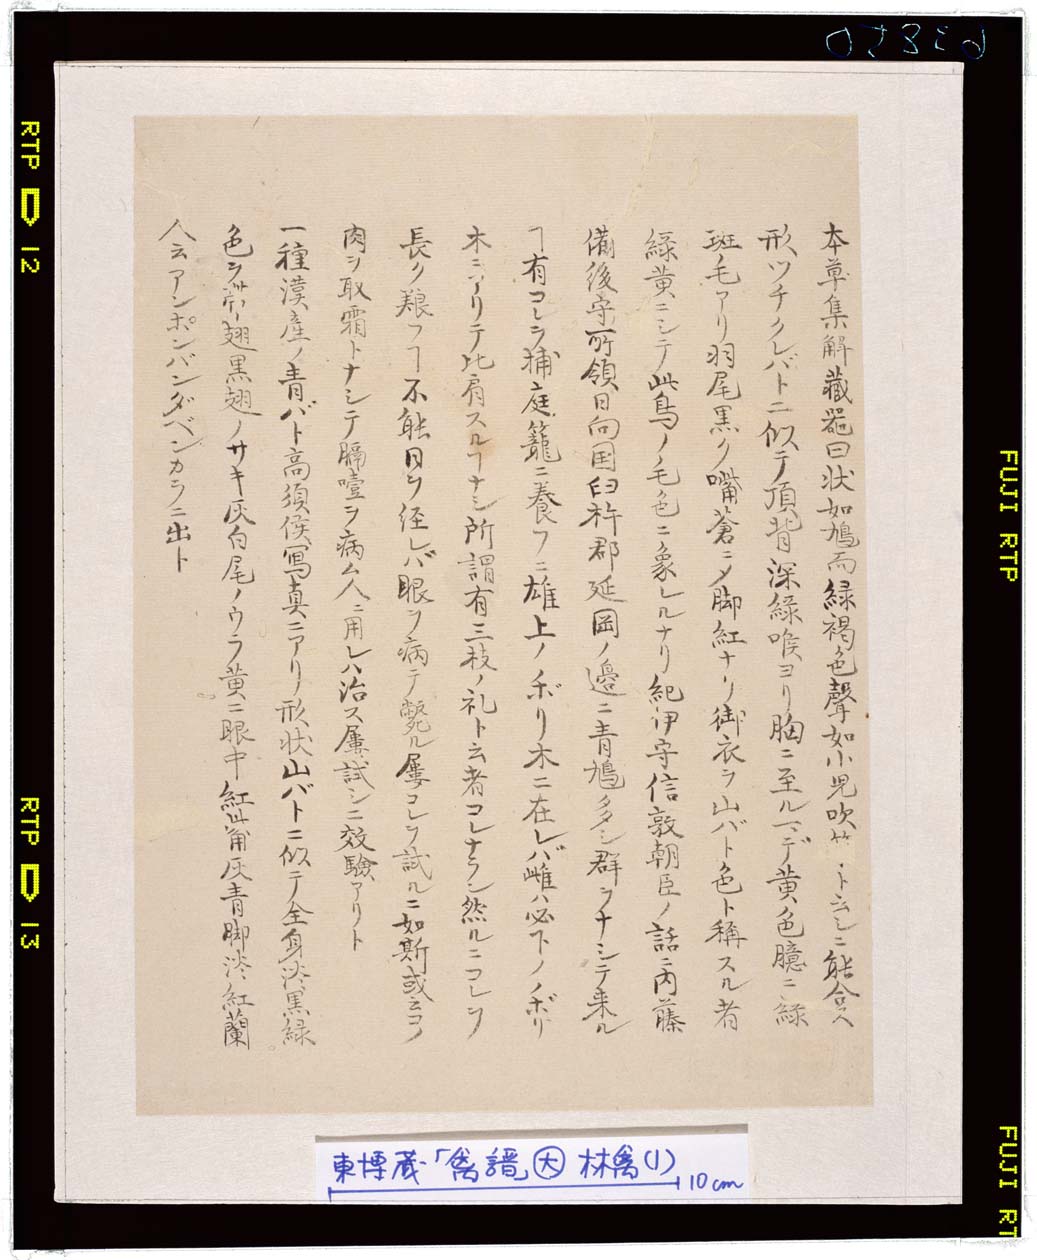 本草集解藏器曰状如鳩而緑褐色聲如小児吹竽トニ能合ヘ
形ツチクレバトニ似テ頂背深緑喉ヨリ胸ニ至ルマデ黄色臆ニ緑
斑毛アリ羽尾黒ク嘴蒼ニ〆脚紅ナリ御衣ヲ山バト色ト稱スル者
緑黄ニシテ此鳥ノ毛色ニ象レルナリ紀伊守信敦朝臣ノ話ニ内藤
備後守所領日向国臼杵郡延岡ノ邉ニ青鳩多シ群ヲナシテ来ル
ヿ有コレヲ捕庭籠ニ養フニ雄上ノボリ木ニ在レバ雌ハ必下ノノボリ
木ニアリテ比肩スルヿナシ所謂有三枝ノ礼ト云者コレナラン然ルニコレヲ
長ク粮フヿ不能日ヲ経レバ眼ヲ病テ斃ル屡コレヲ試ルニ如斯或云コノ
肉ヲ取霜トナシテ膈噎ヲ病ム人ニ用レハ治ス屡試シニ效驗アリト
一種漢産ノ青バト高須侯寫真ニアリノ形状山バトニ似テ全身淡黒緑
色ヲ帯翅黒翅ノサキ灰白尾ノウラ黄ニ眼中紅觜灰青脚淡紅蘭
人云アンポンバンダベンカラニ出ト
東博蔵「禽譜」大 林禽(1)
10cm
RTP 12
RTP 13
FUJI RTP
FUJI RT